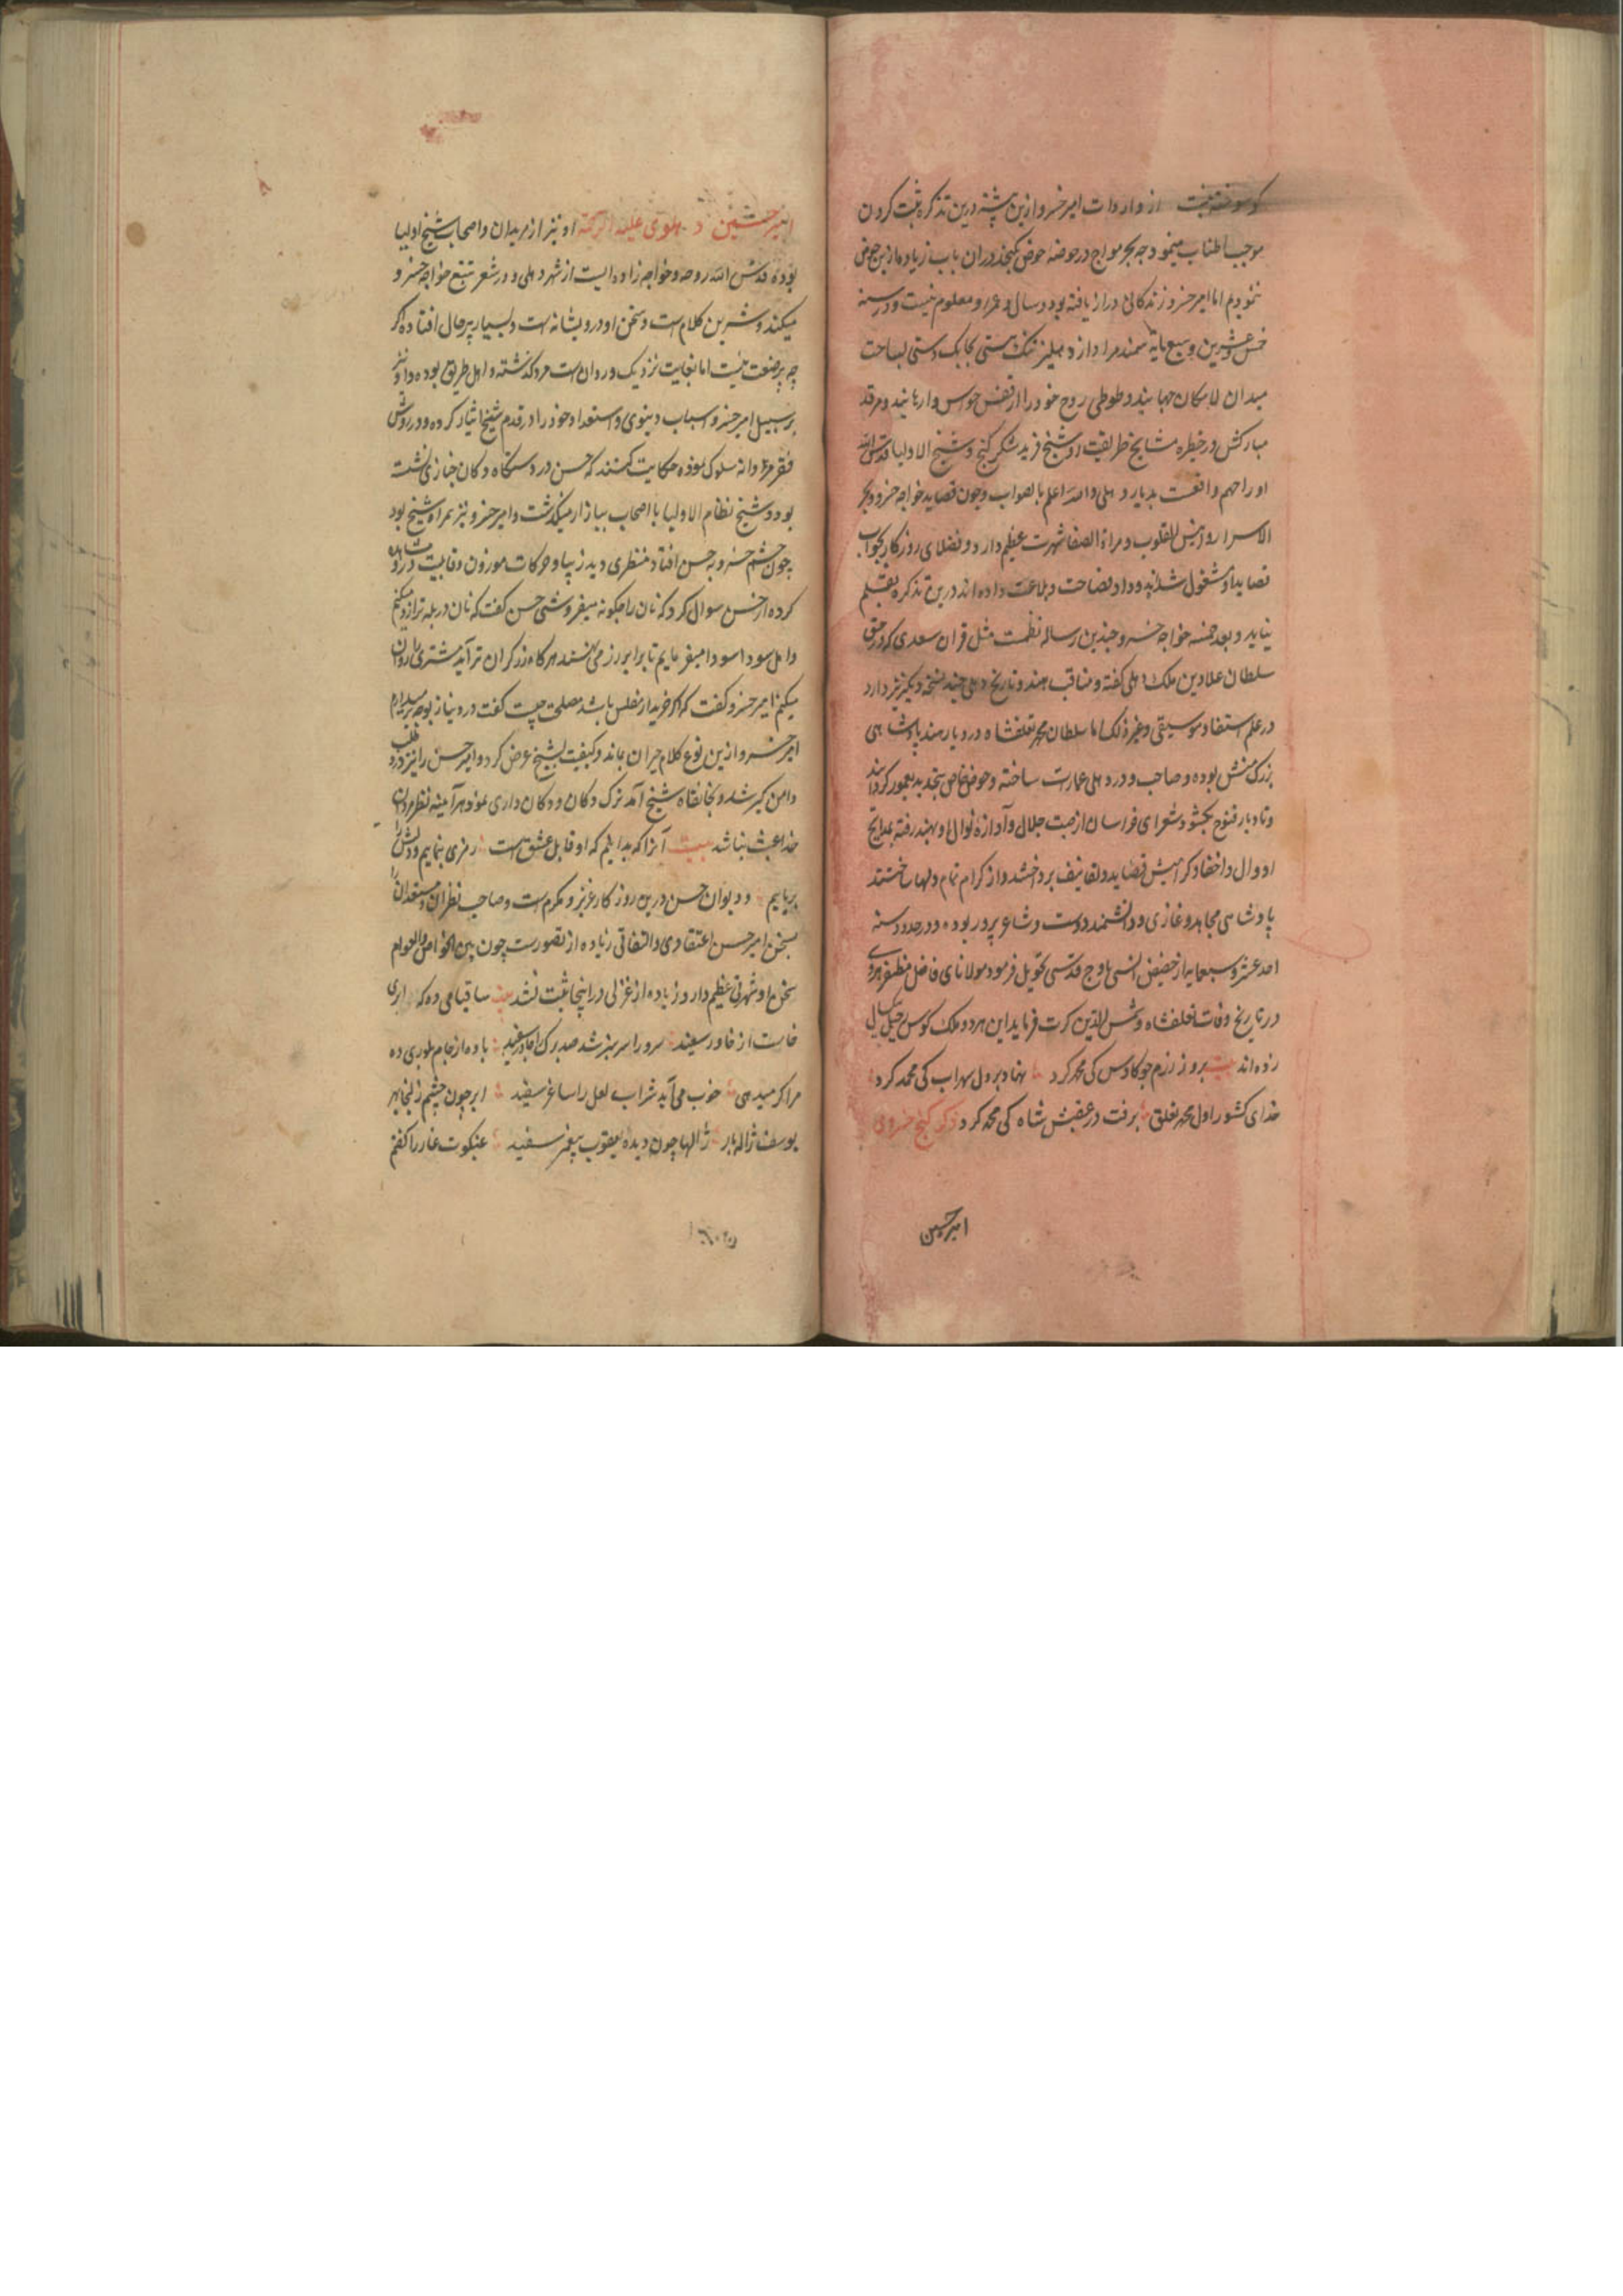 از واردات امیر خسرو ازین بیشتر درین تذکره ثبت کردن
موجب اطناب مینمود چه بحر مواج در حوصله حوض نگنجد در آن باب زیاده ازین خوض
ننمودیم اما امیر خسرو زندگانی دراز یافته بود و سال عمر او معلوم نیست و در سنه
خمس و عشرین و سبعمایه سمند مراد از دهلیز تنگ هستی بچابک دستی بساحت
میدان لامکان جهانید و طوطی روح خود را از قفس حواس وارهانید و مرقد
مبارکش در خطیره مشایخ طریقت او شیخ فرید شکر گنج و شیخ الاولیا قدس الله
ارواحهم واقعست بدیار دهلی والله اعلم بالصواب و چون قصاید خواجه خسرو بحر
الاسرار و انیس القلوب و مراة الصفا شهرت عظیم دارد و فضلای روزگار بجواب
قصاید او مشغول شده اند و داد فصاحت و بلاغت داده اند درین تذکره بقلم
نیاید و بعد خمسه خواجه خسرو چندین رساله نظمست مثل قران سعدی که در حق
سلطان علادین ملک دهلی گفته و مناقب هند و تاریخ دهلی چند نسخه دیگر نیز دارد
در علم استیفا و موسیقی و غیر ذلک اما سلطان محمد تغلقشاه در دیار هند پادشاهی
بزرگ منش بوده و صاحب و در دهلی عمارت ساخته و حوض خاص بتجدید معمور گردانید
و شعرای خراسان از صیت جلال و آوازه نوال او بهند رفته بمدایح
پادشاهی مجاهد و غازی و دانشمند دوست و شاعر پرور بوده و در حدود سنه
احد عشر و سبعمایه از حضیض انسی باوج قدسی تحویل فرمود مولانای فاضل مظفر هروی
در تاریخ وفات تغلقشاه و شمس الدین کرت فرماید این هر دو ملک کوس رحیل
زده اند بیت بروز رزم چو کاوس کی محمد کرد نهاد بر دل سهراب کی محمد کرد
خدای کشور اول محمد تغلق برفت در عقبش شاه کی محمد کرد
امیر حسن
امیر حسن دهلوی علیه الرحمة او نیز از مریدان و اصحاب شیخ اولیا
بوده قدس الله روحه و خواجه زاده ایست از شهر دهلی و در شعر تتبع خواجه خسرو
میکند و شیرین کلام است و سخن او درویشانه است و بسیار پر حال افتاده اگر
چه پر صنعت نیست اما بغایت نزدیک و روان است مرد گذشته و اهل طریق بوده و او نیز
بر سبیل امیر خسرو اسباب دنیوی و استعداد خود را در قدم شیخ ایثار کرده و در روش
فقر مردانه سلوک نموده حکایت کنند که حسن در دستگاه دکان خبازی نشسته
بود و شیخ نظام الاولیا با اصحاب ببازار میگذشت و امیر خسرو نیز همراه شیخ بود
چون چشم خسرو بر حسن افتاد منظری دید زیبا و حرکات موزون و قابلیت درو مشاهده
کرده از حسن سوال کرد که نان را چگونه میفروشی حسن گفت که نان در پله ترازو میکنم
و اهل سودا سودا میفرمایم تا برابر زر می نهند هر گاه زر گران تر آید مشتری را روان
میکنم امیر خسرو گفت که اگر خریدار مفلس باشد مصلحت چیست گفت درد و نیاز بوجه زر میستانم
امیر خسرو ازین نوع کلام حیران بماند و کیفیت بشیخ عرض کرد و امیر حسن را نیز درد طلب
دامن گیر شد و بخانقاه شیخ آمد ترک دکان و دکان داری نمود هر آینه نظر مردان
خدا عبث نباشد بیت آنرا که بدانیم که او قابل عشق است رمزی بنماییم و دلش را
برباییم و دیوان حسن درین روزگار عزیز و مکرم است و صاحب نظران و مستعدان را
بسخن امیر حسن اعتقادی و التفاتی زیاده از تصورست چون بین الخواص والعوام
سخن او شهرتی عظیم دارد زیاده از غزلی در اینجا ثبت نشد بیت ساقیا می ده که ابری
خاست از خاور سفید سرو را سرسبز شد صد برگ را چادر سفید باده از جام بلوری ده
مرا گر میدهی خوب می آید شراب لعل را ساغر سفید ابر چون چشم زلیخا بهر
یوسف ژاله بار ژالها چون دیده یعقوب پیغمبر سفید عنکبوت غار را گفتم